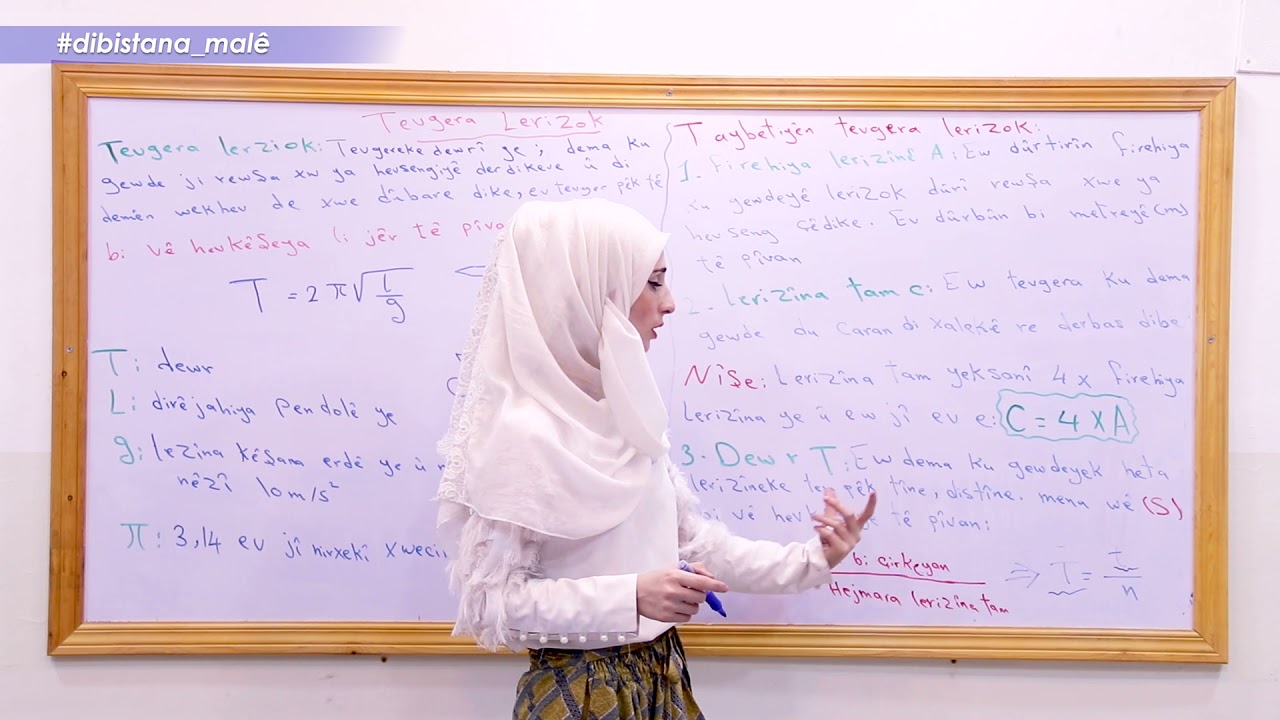 #dibistana_malê
Tevgera Lerizok
Tevgera lerziok: Tevgereke dewrî ye; dema ku
gewde ji rewşa xw ya hevsengiyê derdikeve û di
demên wekhev de xwe dûbare dike, ev tevger pêk tê
bi vê hevkêşeya li jêr tê pîva
T = 2 π √(L/g)
T: dewr
L: dirêjahiya pendolê ye
g: lezîna kêşana erdê ye û n
nêzî 10 m/s²
π: 3,14 ev jî hirxekî xwecih
Taybetiyên tevgera lerizok:
1- firehiya lerizînê A: Ew dûrtirîn firehiya
ku gewdeyê lerizok dûrî rewşa xwe ya
hevseng çêdike. Ev dûrbûn bi metreyê (m)
tê pîvan
2- Lerizîna tam C: Ew tevgera ku dema
gewde du caran di xalekê re derbas dibe
Nîşe: Lerizîna tam yeksanî 4 x firehiya
Lerizîna ye û ew jî ev e: C = 4 X A
3- Dewr T: Ew dema ku gewdeyek heta
lerizîneke pêk tîne, distîne. mena wê (S)
bi vê tê pîvan:
bi çirkeyan
Hejmara lerizîna tam
⇒ T = t/n